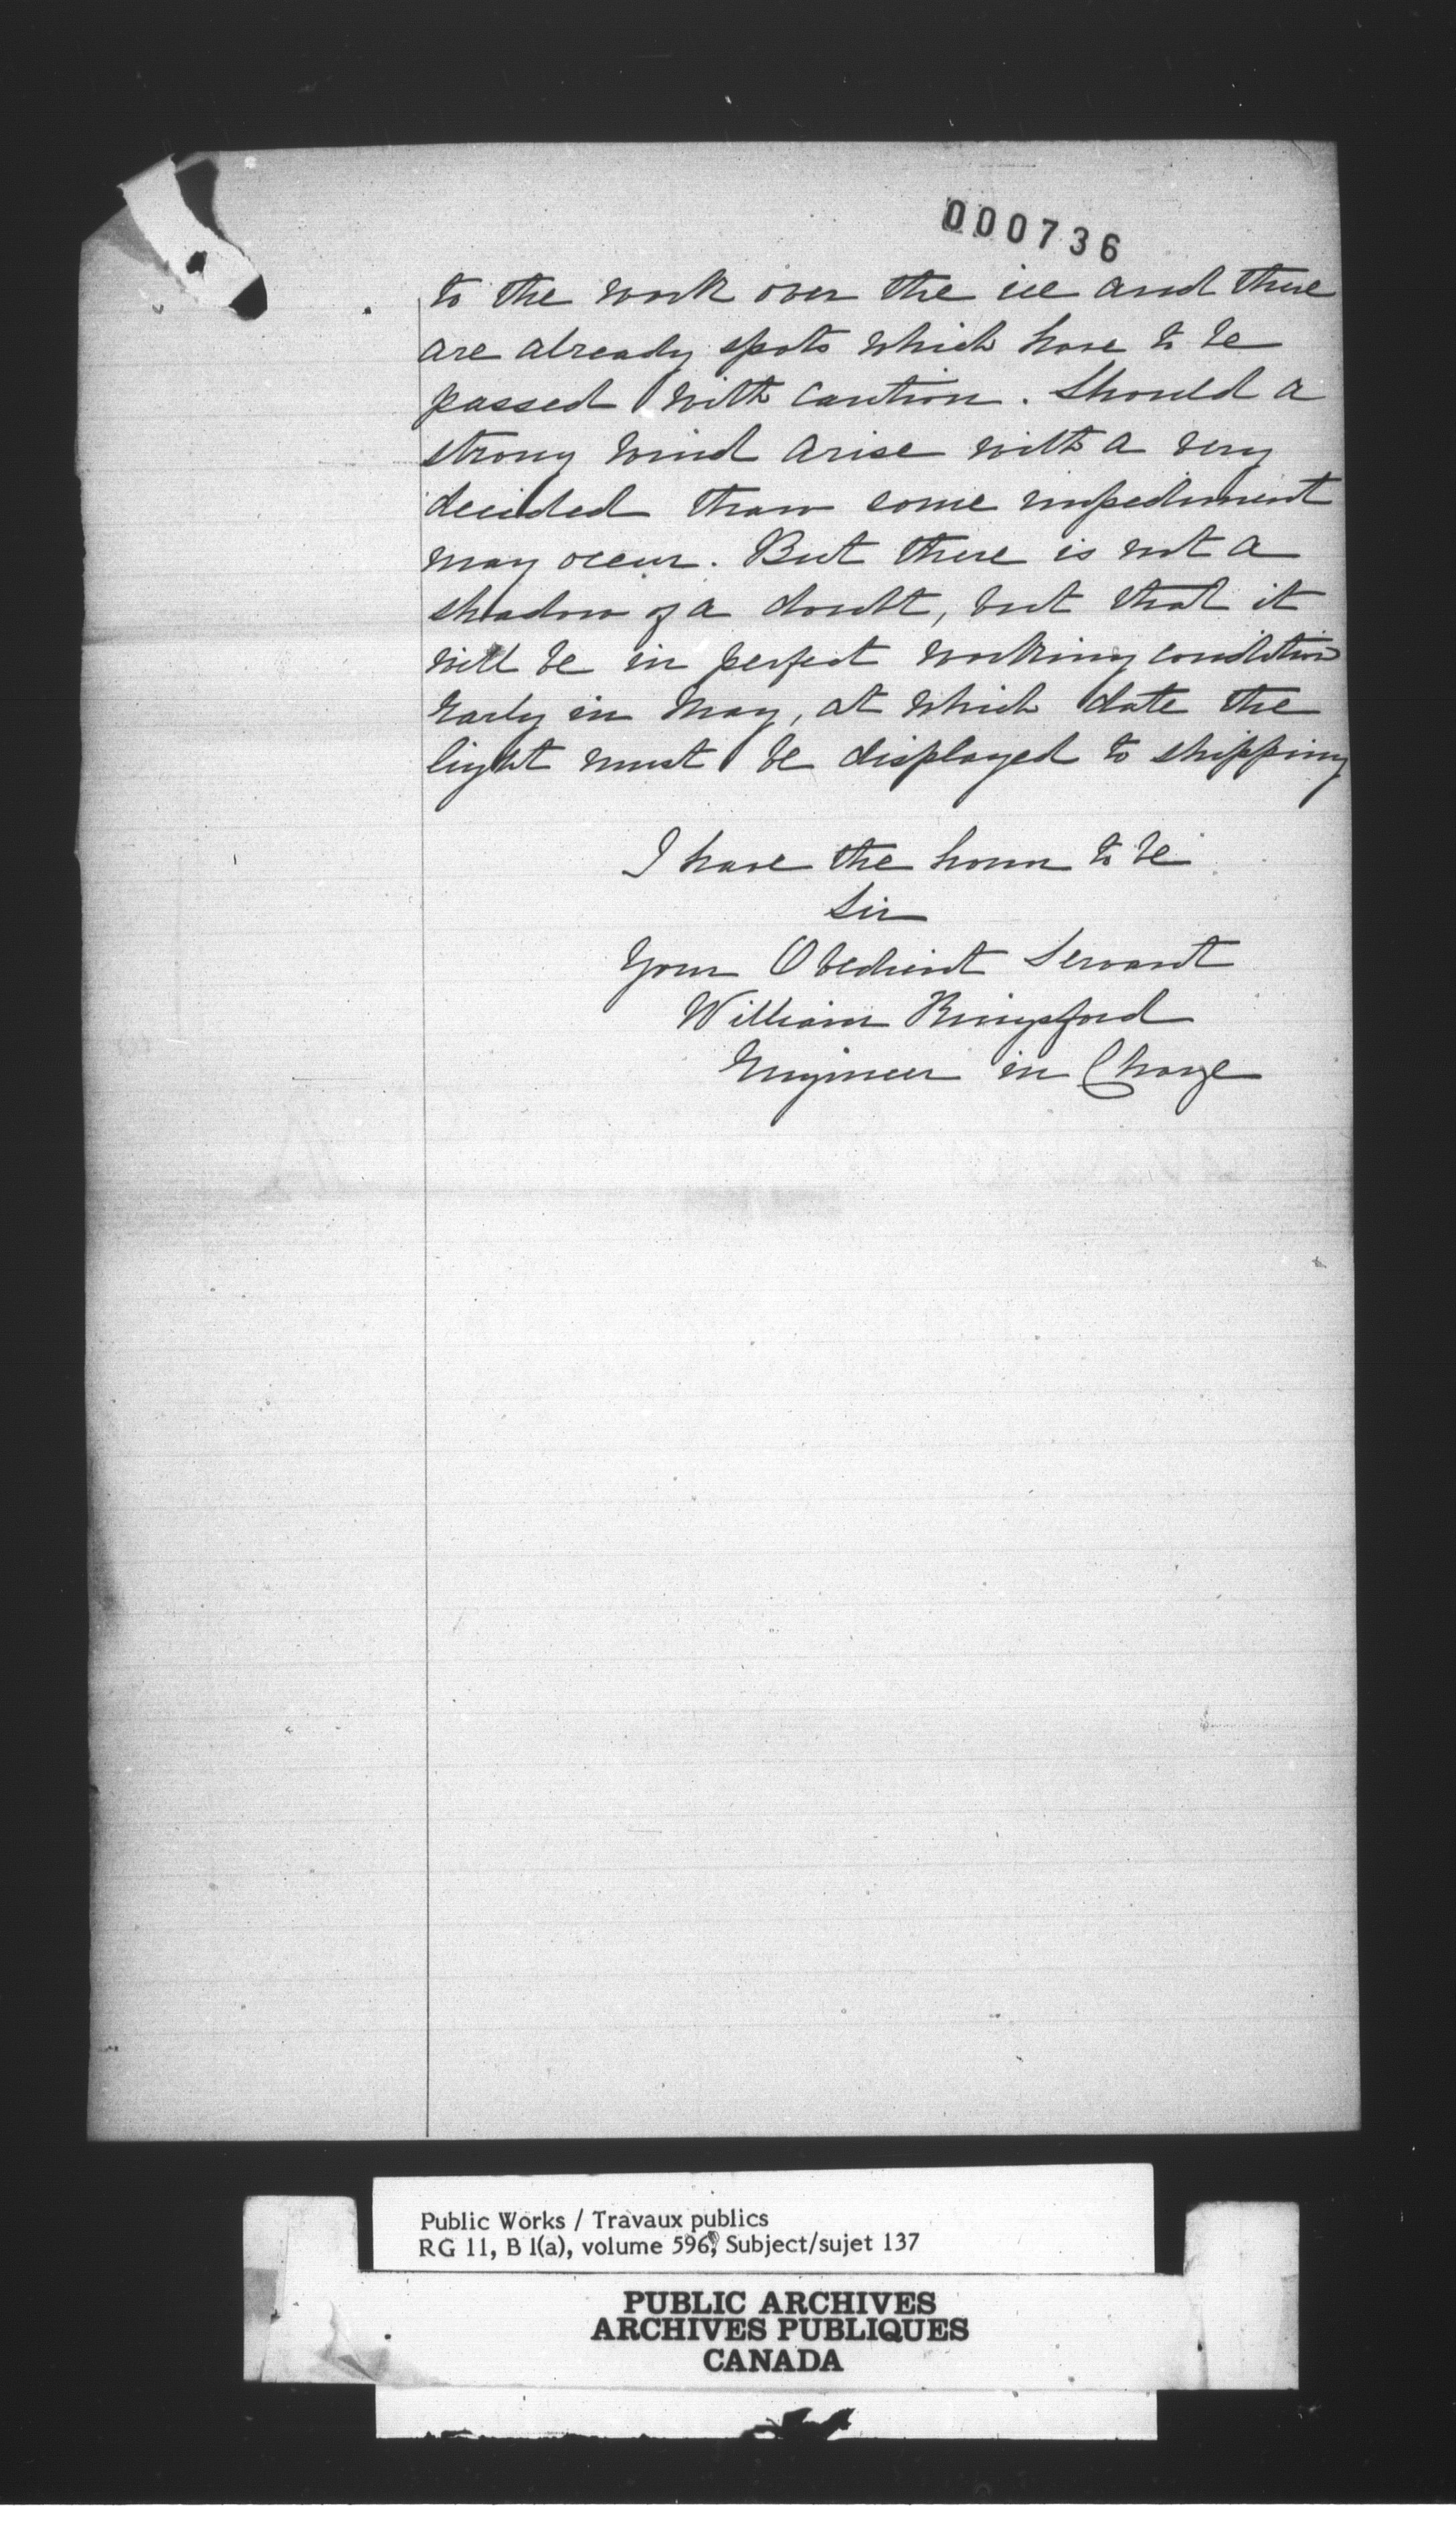 000736
to the work over the ice and there
are already spots which have to be
passed with caution. Should a
strong wind arise with a very
decided thaw some impediment
may occur. But there is not a
shadow of a doubt, but that it
will be in perfect working condition
early in May, at which date the
light must be displayed to shipping
I have the honor to be
Sir
Your Obedient Servant
William Kingsford
Engineer in Charge
Public Works / Travaux publics
RG 11, B 1(a), volume 596, Subject/sujet 137
PUBLIC ARCHIVES
ARCHIVES PUBLIQUES
CANADA